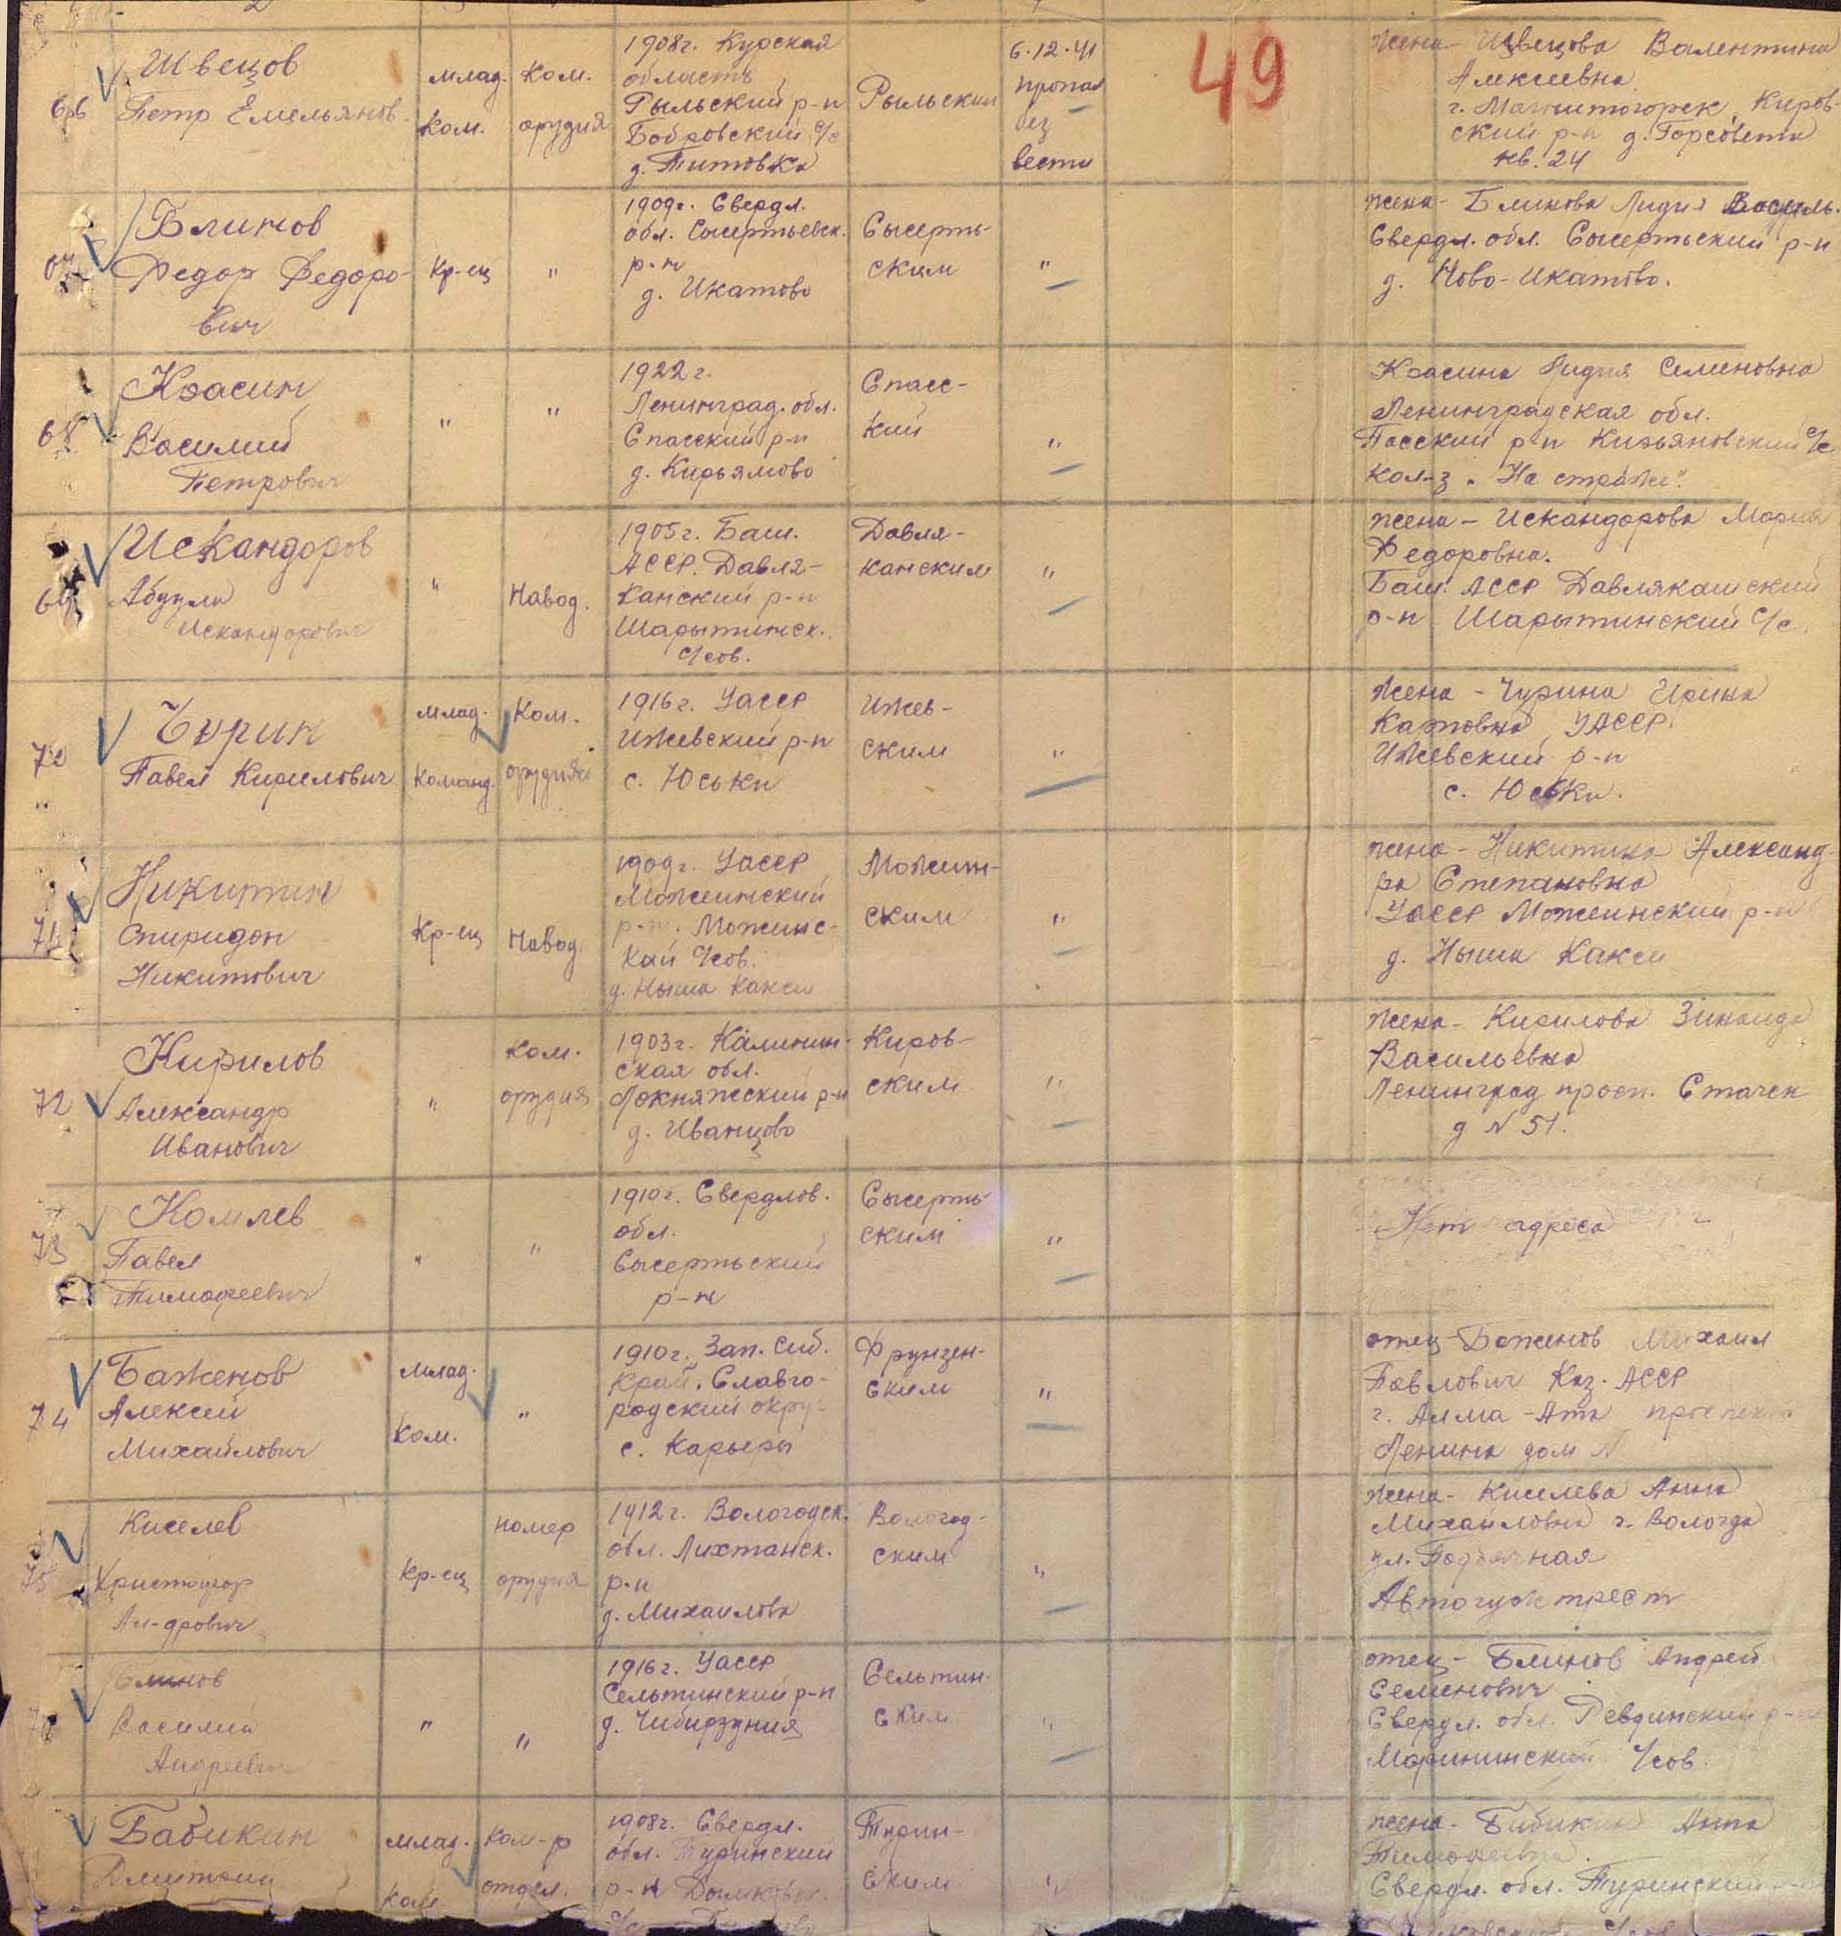 49
66
Швецов
Петр Емельянов.
млад.
ком.
Ком.
орудия
1908г. Курская
область
Рыльский р-н
Бобровский с/с
д. Титовка
Рыльским
6.12.41
пропал
без
вести
жена - Швецова Валентина
Алексеевна
г. Магнитогорск, Киров-
ский р-н д. Горсовета
кв. 24
67
Блинов
Федор Федоро-
вич
Кр-ец
"
1909г. Свердл.
обл. Сысертьевск.
р-н
д. Икатово
Сысерть-
ским
"
жена - Блинова Лидия Василь.
Свердл. обл. Сысертьский р-н
д. Ново-Икатово.
68
Красин
Василий
Петрович
"
"
1922г.
Ленинград. обл.
Спасский р-н
д. Кирьямово
Спасс-
кий
"
Красина Лидия Семеновна
Ленинградская обл.
Пасский р-н Кизьяновский с/с
кол-з "На страже".
69
Искандоров
Абдула
Искандорович
"
Навод.
1905г. Баш.
АССР. Давле-
канский р-н
Шарытинск.
с/сов.
Давля-
канским
"
жена - Искандорова Мария
Федоровна.
Баш. АССР Давлякашский
р-н Шарытинский с/с.
70
Чурин
Павел Кирилович
млад.
Команд.
Ком.
орудия
1916г. УАССР
Ижевский р-н
с. Юськи
Ижев-
ским
"
Жена - Чурина Ирина
Карповна УАССР
Ижевский р-н
с. Юськи.
71
Никитин
Спиридон
Никитович
Кр-ец
Навод
1909г. УАССР
Можгинский
р-н. Можгинс-
кий с/сов.
д. Ныша Какси
Можгин-
ским
"
жена - Никитина Александ-
ра Степановна
УАССР Можгинский р-н
д. Ныша Какси
72
Кирилов
Александр
Иванович
"
Ком.
орудия
1903г. Калинин-
ская обл.
Локняжский р-н
д. Иванцово
Киров-
ским
"
Жена - Кирилова Зинаида
Васильевна
Ленинград просп. Стачек
д N 51.
73
Комлев
Павел
Тимофеевич
"
"
1910г. Свердлов.
обл.
Сысертьский
р-н
Сысерть-
ским
"
Нет адреса
74
Баженов
Алексей
Михайлович
млад.
ком.
"
1910г. Зап. Сиб.
край. Славго-
родский округ
с. Карьеры
Фрунзен-
ским
"
отец - Баженов Михаил
Павлович Каз. АССР
г. Алма-Ата проспект
Ленина дом N
75
Киселев
Христофор
Ан-дрович
Кр-ец
номер
орудия
1912г. Вологодск.
обл. Лихтанск.
р-н
д. Михайлова
Вологод-
ским
"
жена - Киселева Анна
Михайловна г. Вологда
ул.
Автогужтрест
76
Блинов
Василий
Андреевич
"
"
1916г. УАССР
Сельтинский р-н
д. Чибирзуния
Сельтин-
ским
"
отец - Блинов Андрей
Семенович
Свердл. обл. Ревдинский р-н
Мариинский с/сов.
Бабикин
Дмитрий
млад.
ком
ком-р
отдел.
1908г. Свердл.
обл. Туринский
р-н
Турин-
ским
"
жена - Бабикина Анна
Тимофеевна.
Свердл. обл. Туринский
с/сов